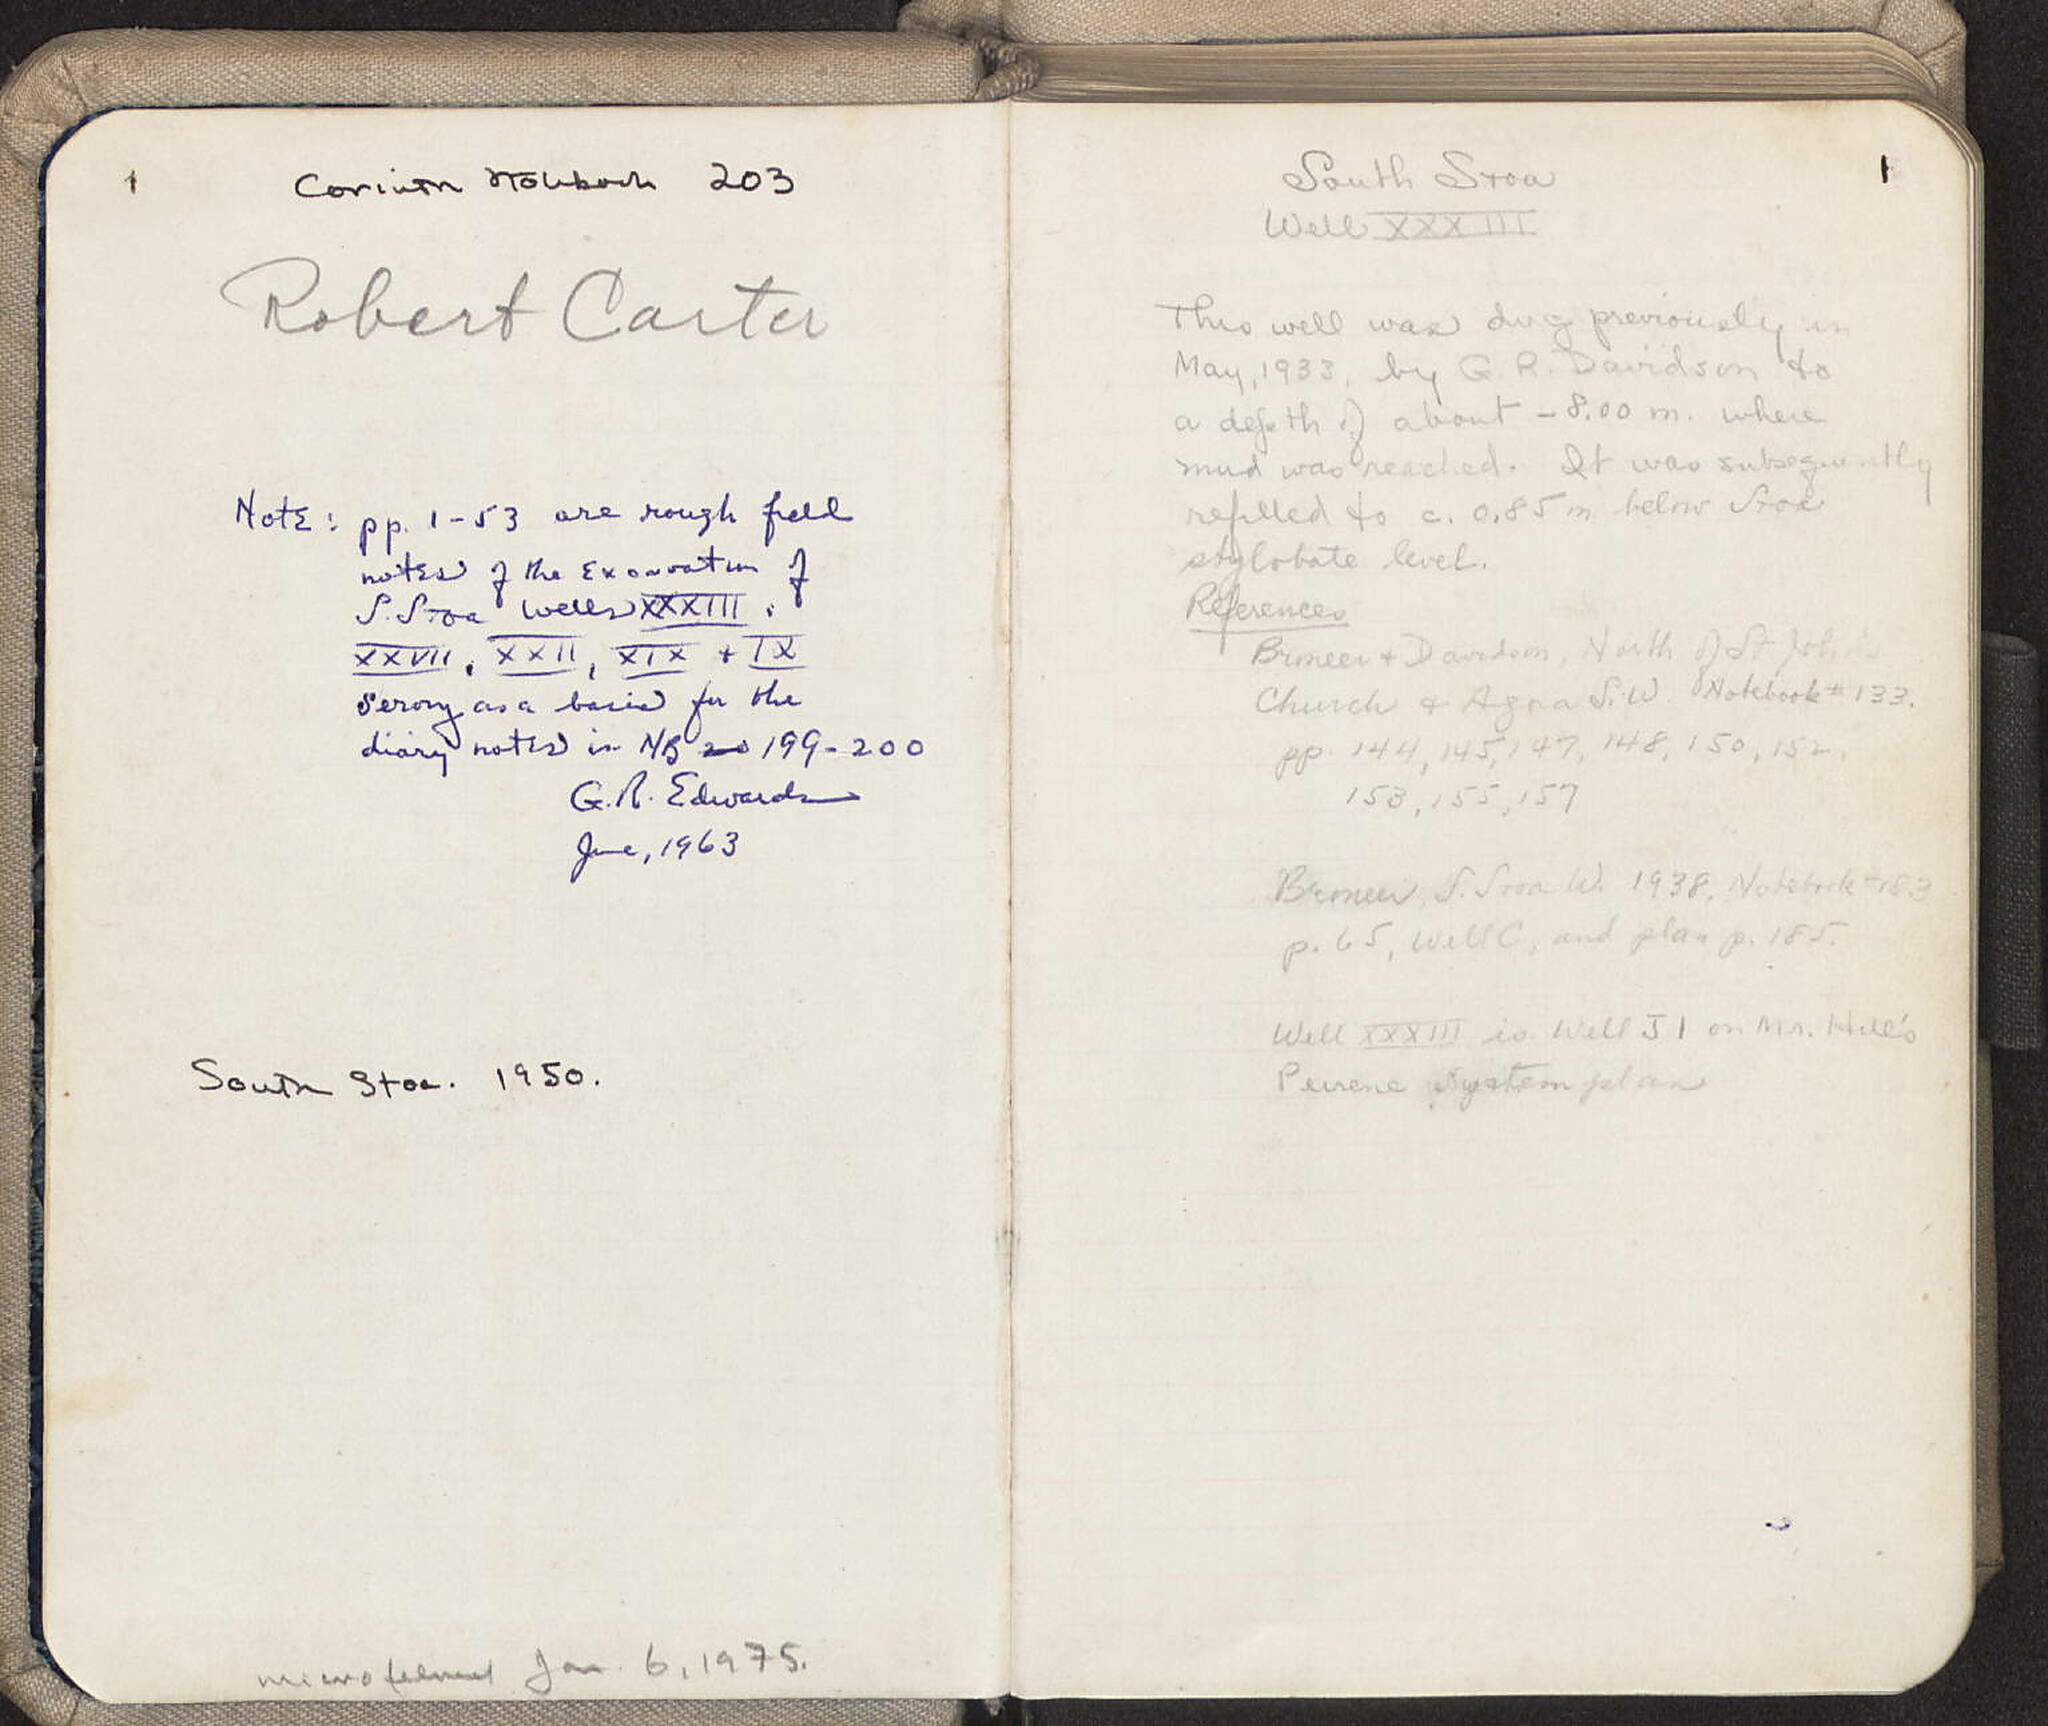 1
Corinth Notebook 203
Robert Carter
Note: pp. 1-53 are rough field
notes of the Excavation of
S. Stoa Wells XXXIII,
XXVII, XXII, XIX + IX
serving as a basis for the
diary notes in NB 199-200
G.R. Edwards
June, 1963
South Stoa. 1950.
microfilmed Jan. 6, 1975.
1
South Stoa
Well XXXIII
This well was dug previously in
May, 1933, by G. R. Davidson to
a depth of about -8.00 m. where
mud was reached. It was subsequently
refilled to c. 0.85 m below Stoa
stylobate level.
References
Broneer + Davidson, North of St John's
Church & Agora S.W. Notebook # 133.
pp. 144, 145, 147, 148, 150, 152,
153, 155, 157
Broneer, S. Stoa W. 1938, Notebook # 183
p. 65, Well C, and plan p. 185.
Well XXXIII is Well J 1 on Mr. Hill's
Peirene System plan